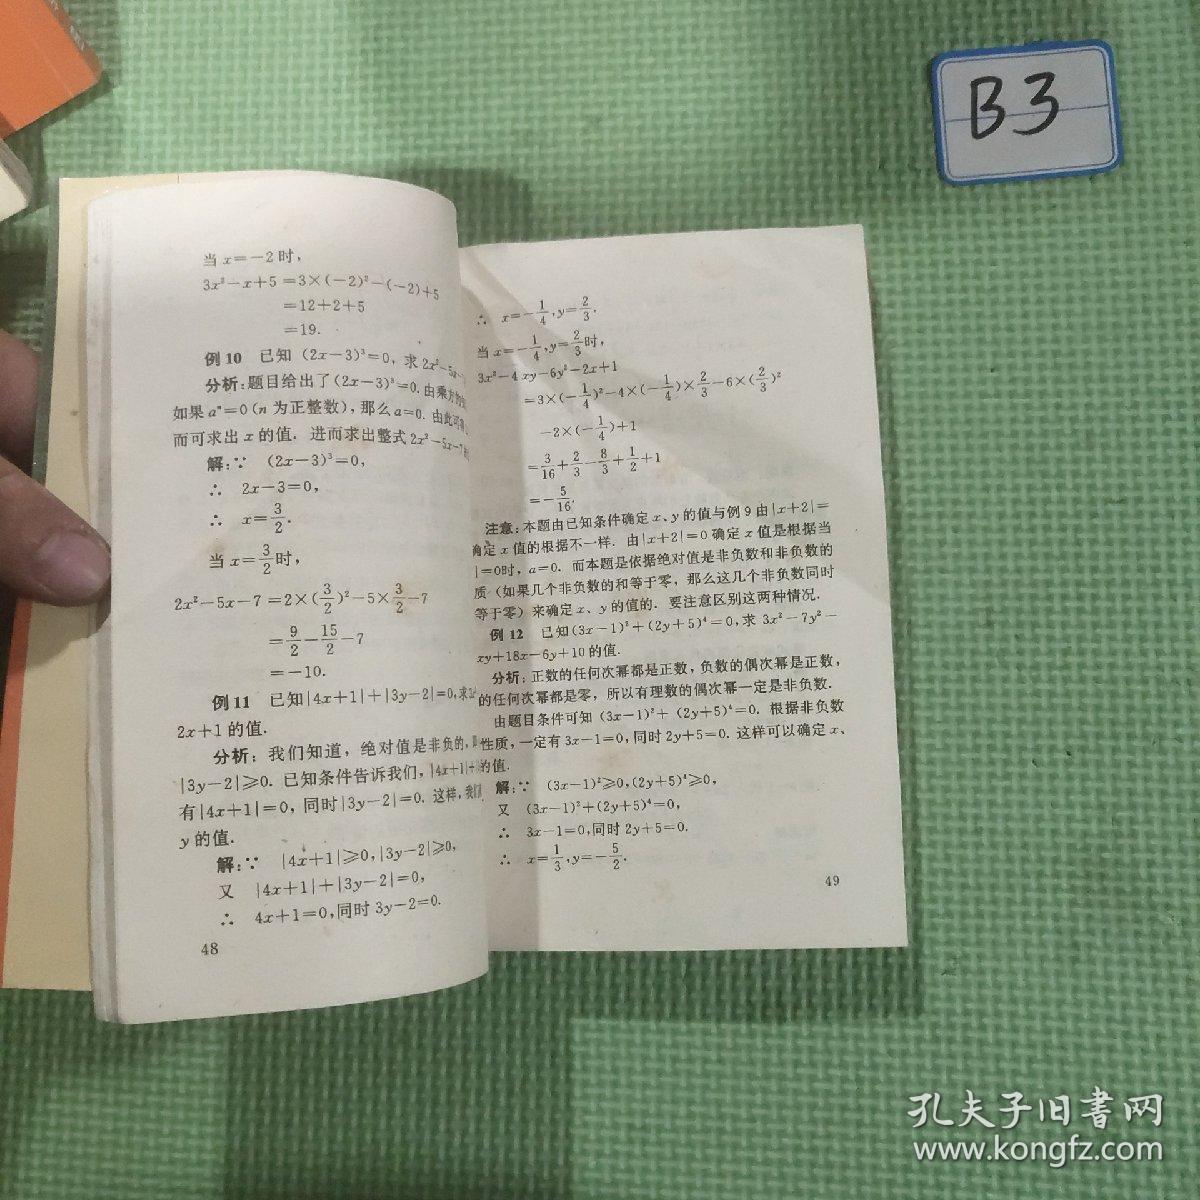 B3
当 x=-2 时，
3x²-x+5=3×(-2)²-(-2)+5
=12+2+5
=19.
例10 已知 (2x-3)³=0，求 2x²-5x-7
分析：题目给出了(2x-3)³=0. 由乘方的
如果 aⁿ=0(n 为正整数)，那么 a=0. 由此可
而可求出 x 的值. 进而求出整式 2x²-5x-7
解：∵ (2x-3)³=0，
∴ 2x-3=0，
∴ x=3/2.
当 x=3/2时，
2x²-5x-7=2×(3/2)²-5×3/2-7
=9/2-15/2-7
=-10.
例11 已知|4x+1|+|3y-2|=0，求
2x+1 的值.
分析：我们知道，绝对值是非负的，
|3y-2|≥0. 已知条件告诉我们，|4x+1|+
有|4x+1|=0，同时|3y-2|=0. 这样，我们
y 的值.
解：∵ |4x+1|≥0，|3y-2|≥0，
又 |4x+1|+|3y-2|=0，
∴ 4x+1=0，同时 3y-2=0.
48
∴ x=-1/4，y=2/3.
当 x=-1/4，y=2/3时，
3x²-4xy-6y²-2x+1
=3×(-1/4)²-4×(-1/4)×2/3-6×(2/3)²
-2×(-1/4)+1
=3/16+2/3-8/3+1/2+1
=-5/16.
注意：本题由已知条件确定 x、y 的值与例 9 由|x+2|=
确定 x 值的根据不一样. 由|x+2|=0 确定 x 值是根据当
|=0时，a=0. 而本题是依据绝对值是非负数和非负数的
质 (如果几个非负数的和等于零，那么这几个非负数同时
等于零) 来确定 x、y 的值的. 要注意区别这两种情况.
例12 已知(3x-1)²+(2y+5)⁴=0，求 3x²-7y²-
xy+18x-6y+10 的值.
分析：正数的任何次幂都是正数，负数的偶次幂是正数，
的任何次幂都是零，所以有理数的偶次幂一定是非负数.
由题目条件可知 (3x-1)²+(2y+5)⁴=0. 根据非负数
性质，一定有 3x-1=0，同时 2y+5=0. 这样可以确定 x、
的值.
解：∵ (3x-1)²≥0，(2y+5)⁴≥0，
又 (3x-1)²+(2y+5)⁴=0，
∴ 3x-1=0，同时 2y+5=0.
∴ x=1/3，y=-5/2.
49
孔夫子旧书网
www.kongfz.com